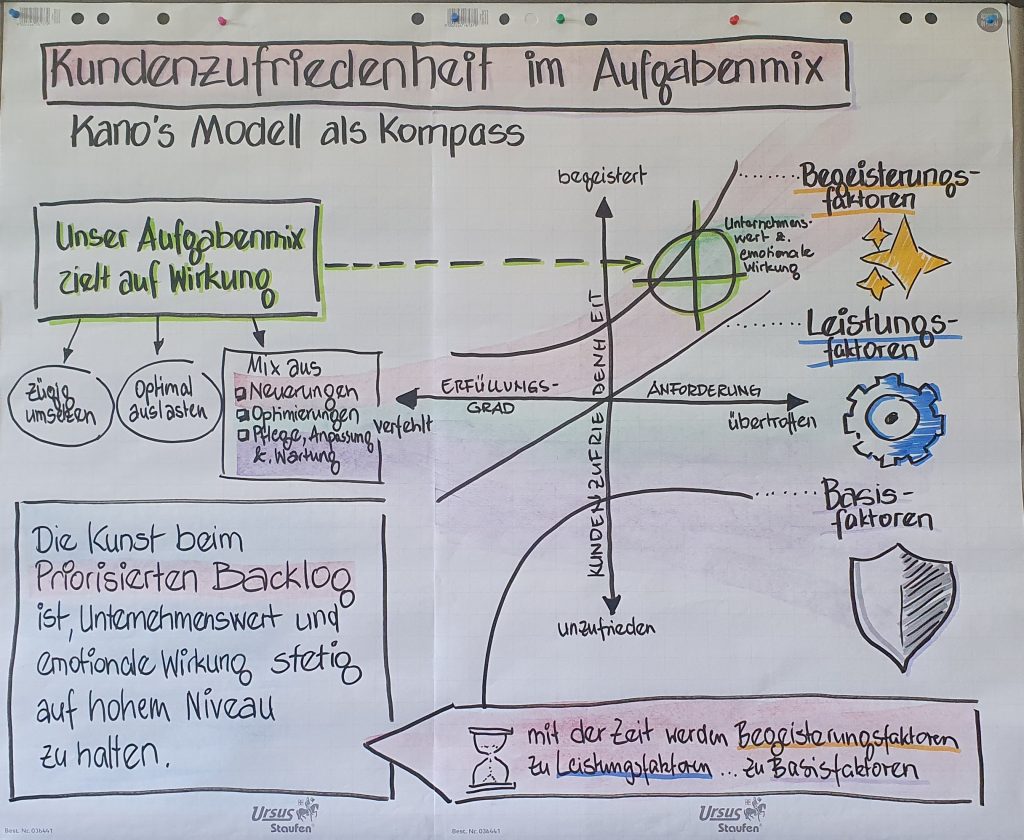 Kundenzufriedenheit im Aufgabenmix
Kano's Modell als Kompass
Unser Aufgabenmix
zielt auf Wirkung
zügig
umsetzen
Optimal
auslasten
Mix aus
Neuerungen
Optimierungen
Pflege, Anpassung
&. Wartung
begeistert
KUNDENZUFRIEDENHEIT
unzufrieden
ERFÜLLUNGS-
GRAD
ANFORDERUNG
verfehlt
übertroffen
Unternehmens-
wert &.
emotionale
Wirkung
Begeisterungs-
faktoren
Leistungs-
faktoren
Basis-
faktoren
Die Kunst beim
Priorisierten Backlog
ist, Unternehmenswert und
emotionale Wirkung stetig
auf hohem Niveau
zu halten.
mit der Zeit werden Begeisterungsfaktoren
zu Leistungsfaktoren ... zu Basisfaktoren
Best. Nr. 036441
Ursus
Staufen
Best. Nr. 036441
Ursus
Staufen